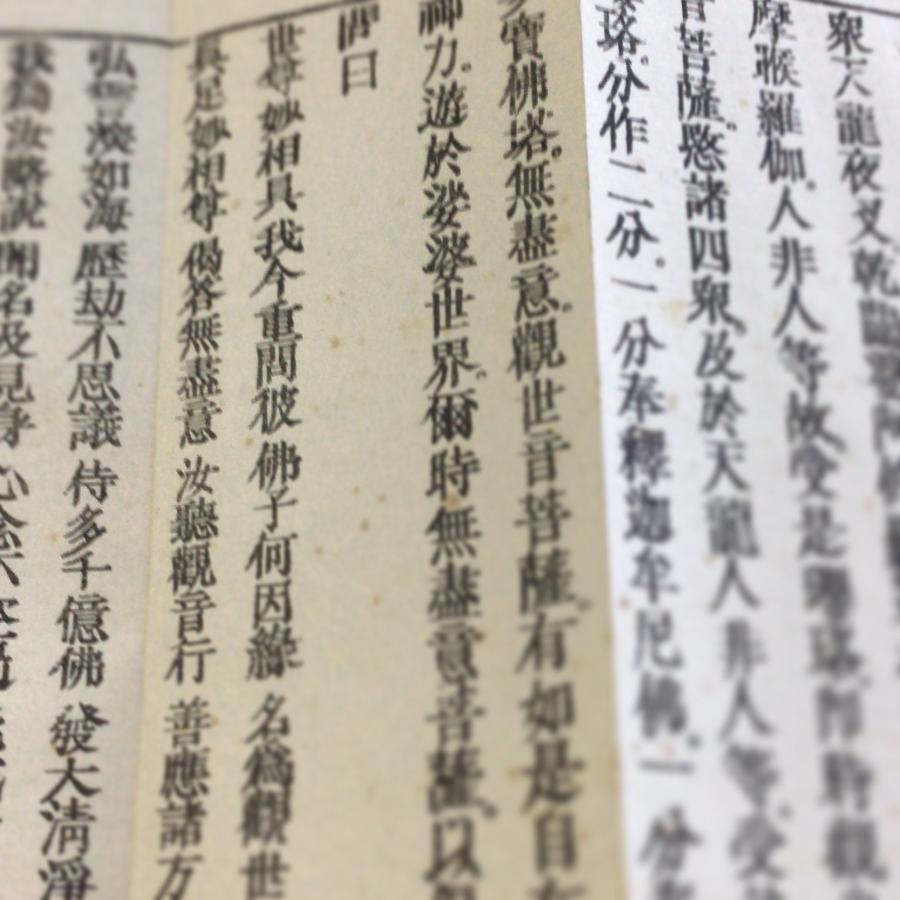 衆天龍夜叉乾闥婆阿修
摩睺羅伽。人非人等故。受是瓔珞。即時觀
音菩薩。愍諸四衆。及於天龍人非人等。受
珞。分作二分。一分奉釋迦牟尼佛。一分
多寶佛塔。無盡意。觀世音菩薩。有如是自
神力。遊於娑婆世界。爾時無盡意菩薩。以
問曰
世尊妙相具 我今重問彼 佛子何因緣 名爲觀世
具足妙相尊 偈答無盡意 汝聽觀音行 善應諸方
弘誓深如海 歷劫不思議 侍多千億佛 發大清淨
我爲汝略說 聞名及見身 心念不空過